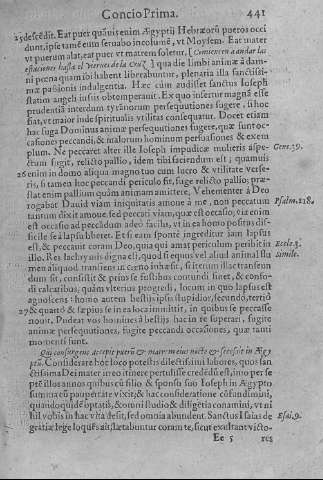 Concio Prima. 441
25 descẽdit. Eat puer quãuis enim Ægyptij Hebræorũ pueros occi
dunt, ipse tamẽ eum seruabo incolumẽ, vt Moysem. Eat mater
vt puerum alat, eat puer vt matrem soletur, [Comiencen a andar las
estaciones hasta el Viernes de la Cruz] qua die limbi animæ à dam-
ni pœna quam ibi habent liberabuntur, plenaria illa sanctissi-
mæ passionis indulgentia. Hæc cum audisset sanctus Ioseph
statim angeli iussis obtemperauit. Ex quo infertur magnã esse
prudentiã interdum tyrannorum persequutiones fugere, si hoc
fiat, vt maior inde spiritualis vtilitas consequatur. Docet etiam
hac fuga Dominus animæ persequutiones fugere, quæ sunt oc-
casiones peccandi, & malorum hominum persuasiones & exem
plum. Ne peccaret alter ille Ioseph impudicæ mulieris aspe- Gen. 39.
ctum fugit, relicto pallio, idem tibi faciendum est; quamuis
26 enim in domo aliqua magno tuo cum lucro & vtilitate verse-
ris, si tamen hoc peccandi periculo fit, fuge relicto pallio; præ-
stat enim pallium quàm animam amittere. Vehementer à Deo
rogabat Dauid viam iniquitatis amoue à me, non peccatum Psalm. 118.
tantum dixit amoue, sed peccati viam, quæ est occasio, via enim
est occasio ad peccandum adeò facilis, vt in ea homo positus dif-
ficile se à lapsu liberet. Et si eam spontè ingreditur iam lapsus
est, & peccauit coram Deo, quia qui amat periculum peribit in Eccle. 3.
illo. Res lachrymis digna est, quod si equus vel asinus animal stu Simile.
men aliquod transiens in cœno inhæsit, si iterum illac transeun
dum sit, consistit & prius se fustibus contundi sinet, & confo-
di calcaribus, quàm vlterius progredi, locum in quo lapsus est
agnoscens: homo autem bestijs ipsis stupidior, secundò, tertiò
27 & quartò & sæpius se in ea loca immittit, in quibus se peccasse
nouit. Pudeat vos homines à bestijs hac in re superari, fugite
animæ persequutiones, fugite peccandi occasiones, quæ tanti
momenti sunt.
Qui consurgens accepit puerũ & matrem eius nocte & secessit in Ægyp
tũ. Considerate hoc loco potestis dilectissimi labores, quos san
ctissima Dei mater in eo itinere pertulisse credẽdũ est, imò per se
ptẽ illos annos quibus cũ filio & sponso suo Ioseph in Ægypto
summa cũ paupertate vixit, & hac consideratione cõfundimini,
quandoquidẽ optatis, & omni studio & diligẽtia conamini, vt ni
hil vobis in hac vita desit, sed omnia abundent. Sanctus Isaias de Esai. 9.
gratiæ lege loquẽs ait, lætabuntur coram te, sicut exultant victo-
Ee 5 res